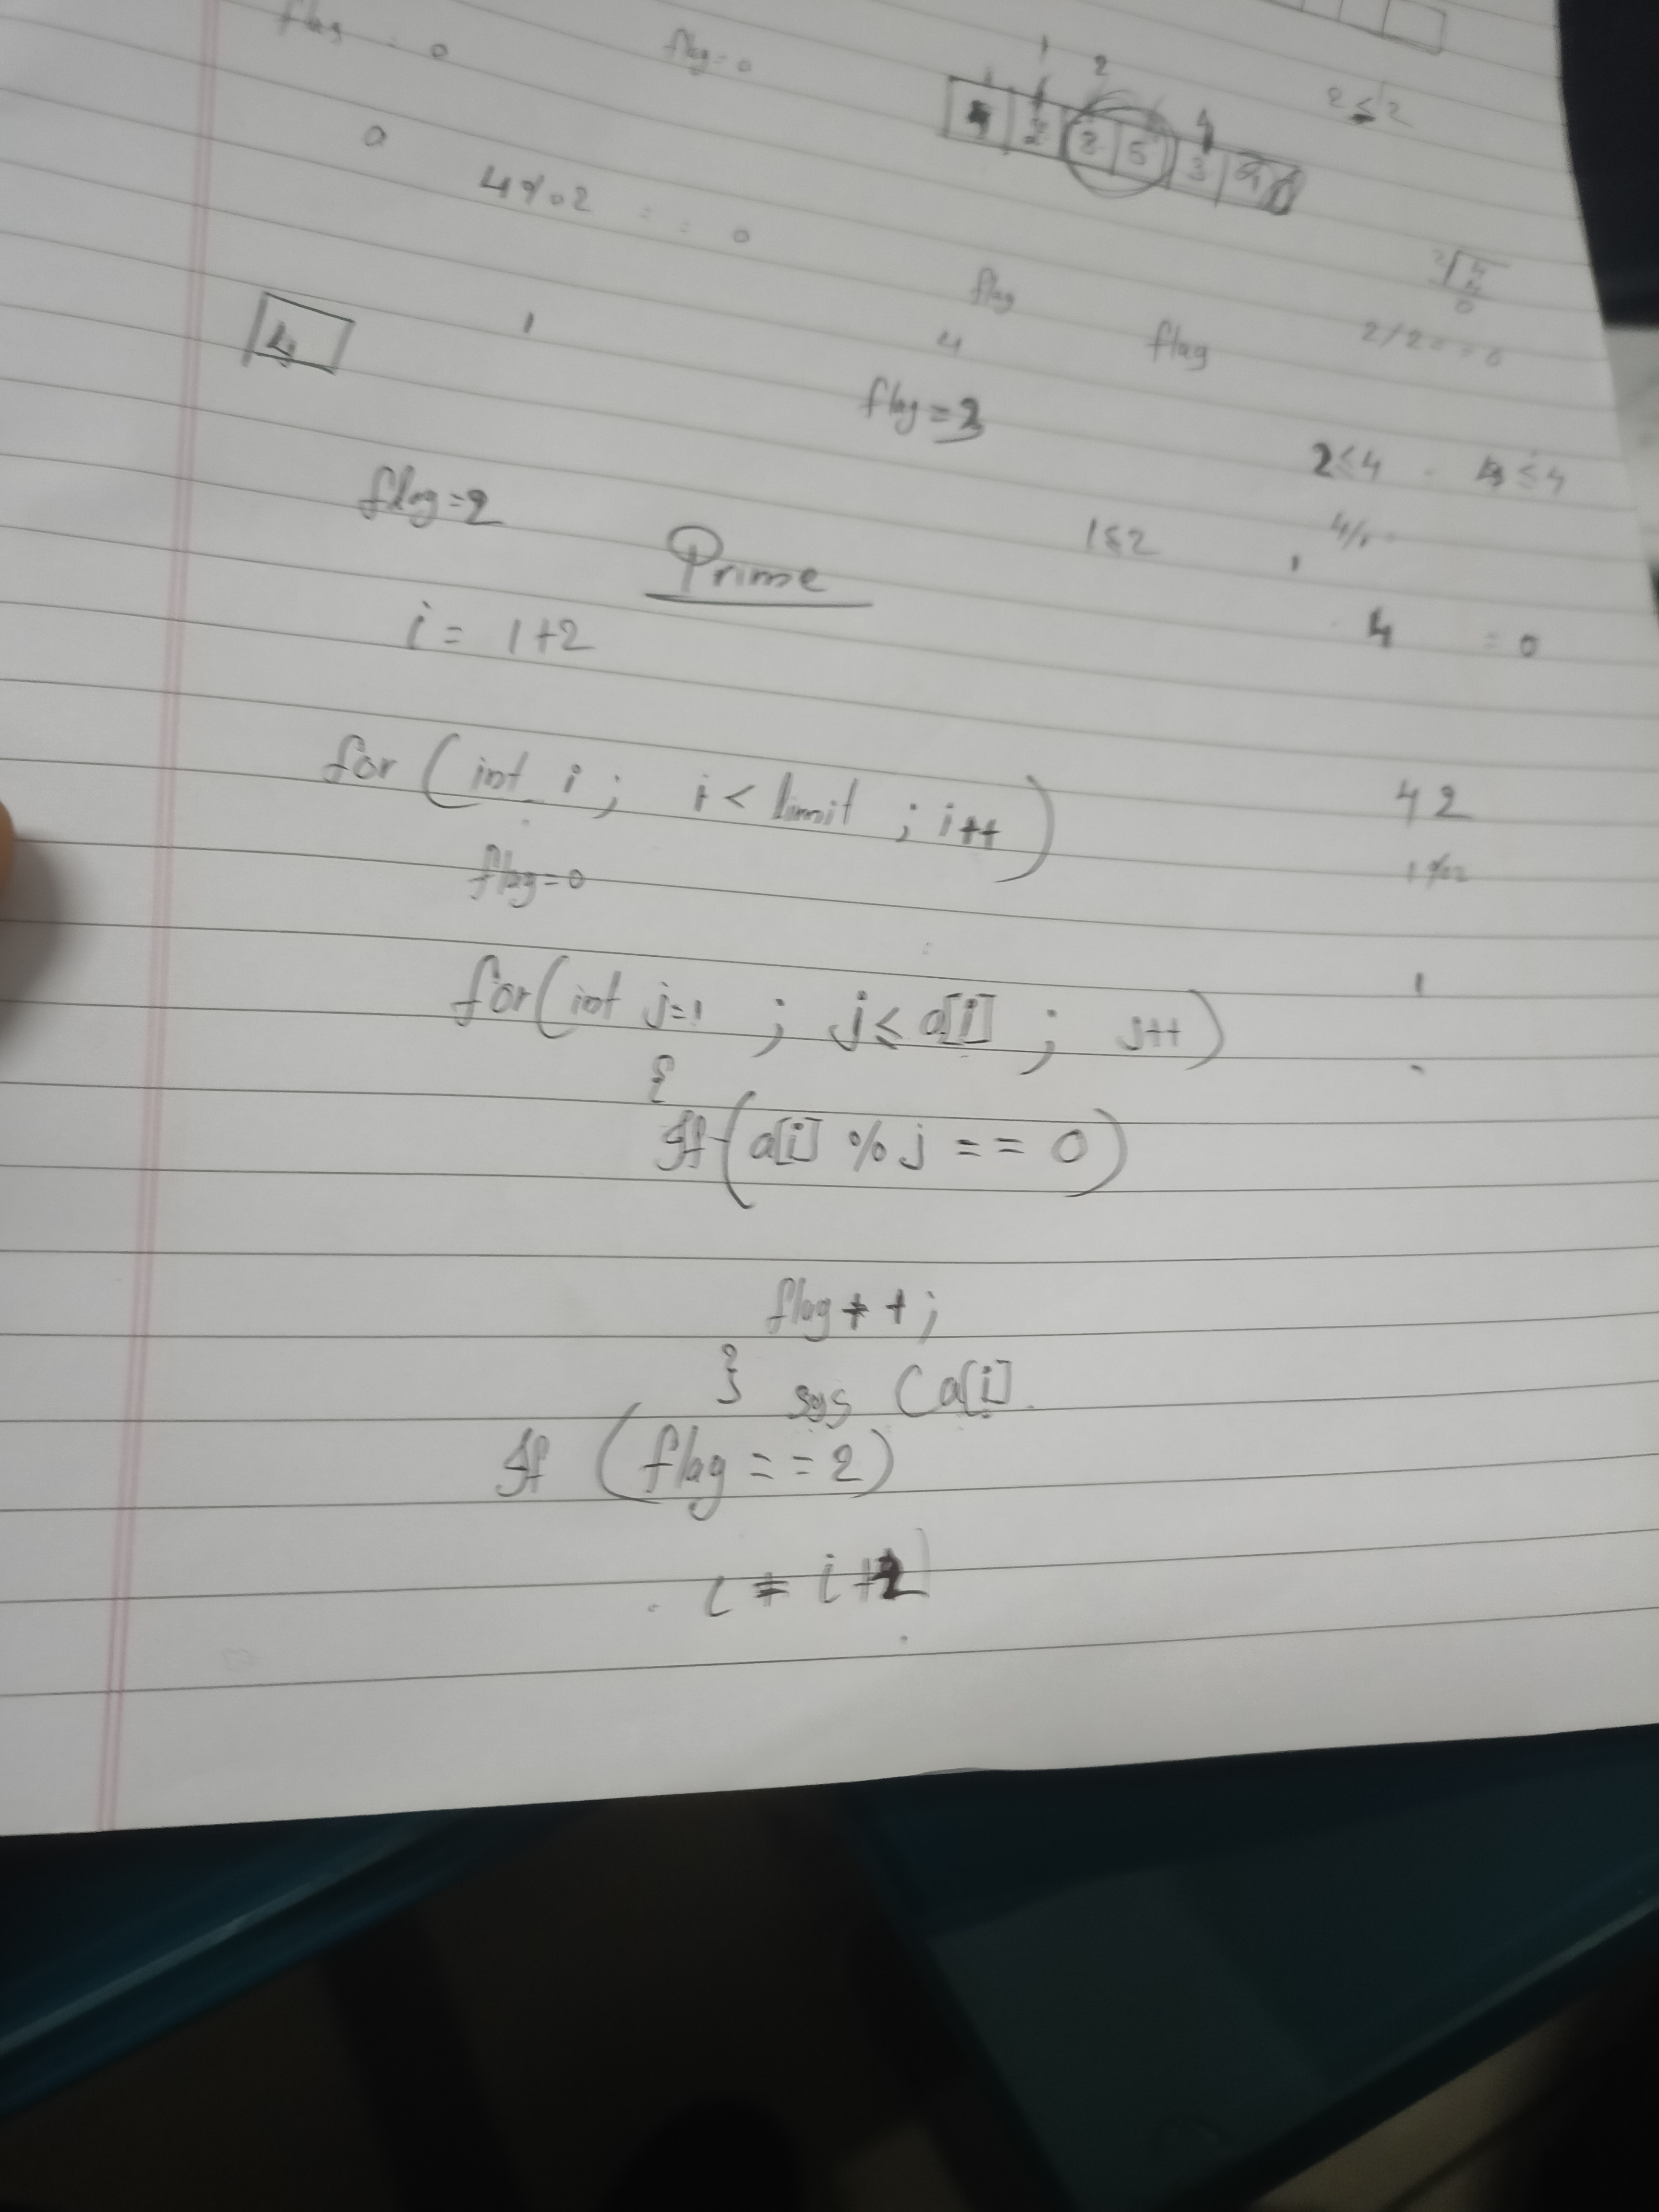 flag = 0
flag = 0
1
2
4
2 5 3
2 ≤ 2
0
4%2 = = 0
4
1
flag
4
flag
2/2 = = 0
flag=3
2≤4
≤4
flag=2
1≤2
Prime
4 = 0
i = 1+2
for (int i; i< limit ; i++)
4 2
flag=0
1%2
1
for(int j=1 ; j≤ a[i] ; j++)
{
If (a[i] % j == 0)
flag++;
} sys (a[i]
If (flag == 2)
i = i+2